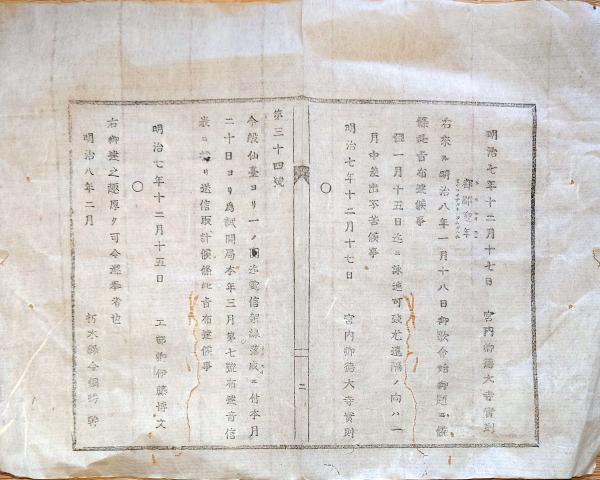 明治七年十二月十七日 宮内卿徳大寺實則
都鄙迎年
右來ル明治八年一月十八日御歌會始御題ニ候
條此旨布達候事
但一月十五日迄ニ詠進可致尤遠隔ノ向ハ一
月中差出不苦候事
明治七年十二月十七日 宮内卿徳大寺實則
○
第三十四號
今般仙臺ヨリ一ノ關迄電信架線落成ニ付本月
二十日ヨリ爲試開局本年三月第七號布達音信
表ニ リ送信取計候條此旨布達候事
明治七年十二月十五日 工部卿伊藤博文
○
右御達之趣厚ク可令遵奉者也
明治八年二月 栃木縣令鍋島幹
二